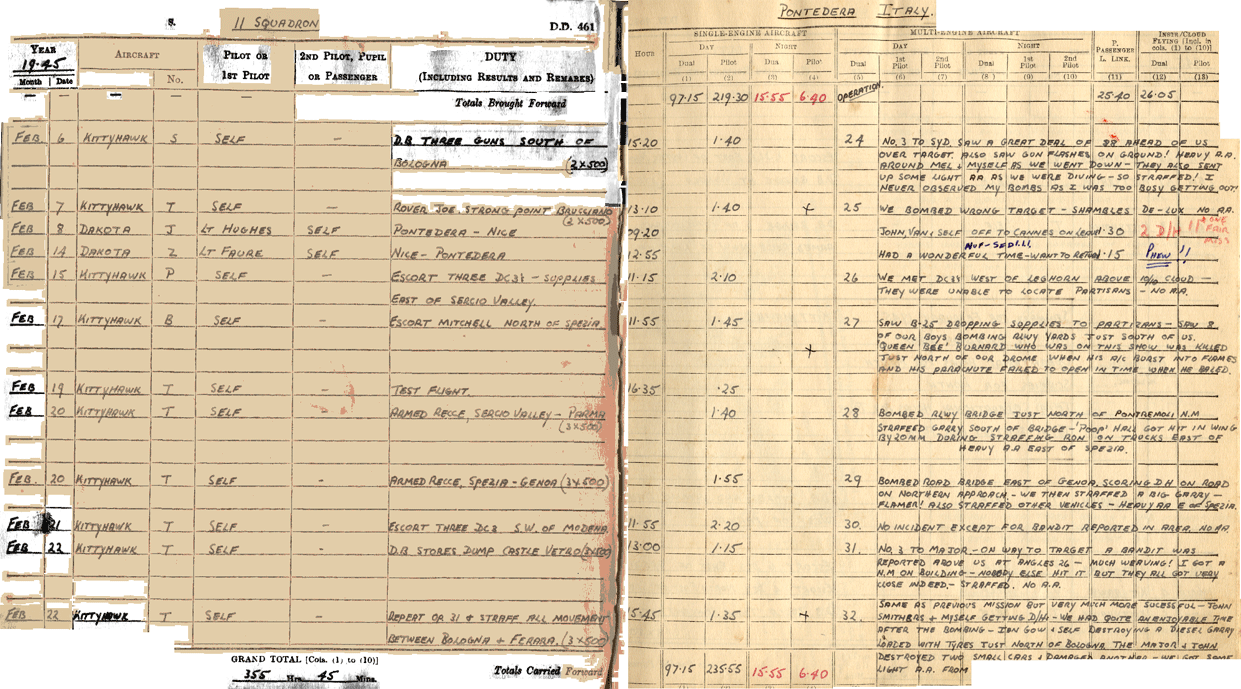 S. 11 SQUADRON D.D. 461
YEAR AIRCRAFT PILOT OR 2ND PILOT, PUPIL DUTY
1945 No. 1ST PILOT OR PASSENGER (INCLUDING RESULTS AND REMARKS)
Month Date
— — — — — Totals Brought Forward
FEB 6 KITTYHAWK S SELF — D.B THREE GUNS SOUTH OF
BOLOGNA (2x500)
FEB 7 KITTYHAWK T SELF — ROVER JOE. STRONG POINT BRUSSIANO
(2x500)
FEB 8 DAKOTA J LT HUGHES SELF PONTEDERA — NICE
FEB 14 DAKOTA Z LT FAURE SELF NICE — PONTEDERA
FEB 15 KITTYHAWK P SELF — ESCORT THREE DC3s — SUPPLIES
EAST OF SERCIO VALLEY.
FEB 17 KITTYHAWK B SELF — ESCORT MITCHELL NORTH OF SPEZIA
FEB 19 KITTYHAWK T SELF — TEST FLIGHT.
FEB 20 KITTYHAWK T SELF — ARMED RECCE, SERCIO VALLEY — PARMA
(3x500)
FEB. 20 KITTYHAWK T SELF — ARMED RECCE, SPEZIA - GENOA (3x500)
FEB 21 KITTYHAWK T SELF — ESCORT THREE DC3 S.W. OF MODENA
FEB 22 KITTYHAWK T SELF — D.B STORES DUMP CASTLE VETRO (3x500)
FEB 22 KITTYHAWK T SELF — REPEAT OP 31 & STRAFF ALL MOVEMENT
BETWEEN BOLOGNA + FERARA. (3x500)
GRAND TOTAL [Cols. (1) to (10)]
355 Hrs. 45 Mins. Totals Carried Forward
PONTEDERA ITALY.
SINGLE-ENGINE AIRCRAFT MULTI-ENGINE AIRCRAFT P. PASSENGER L. LINK. INSTR/CLOUD FLYING [Incl. in cols. (1) to (10)]
HOUR DAY NIGHT DAY NIGHT
Dual Pilot Dual Pilot Dual 1st Pilot 2nd Pilot Dual 1st Pilot 2nd Pilot Dual Pilot
(1) (2) (3) (4) (5) (6) (7) (8) (9) (10) (11) (12) (13)
97.15 219.30 15.55 6.40 OPERATION. 25.40 26.05
15.20 1.40 24 NO.3 TO SYD. SAW A GREAT DEAL OF 88 AHEAD OF US
OVER TARGET. ALSO SAW GUN FLASHES ON GROUND! HEAVY A.A.
AROUND MEL & MYSELF AS WE WENT DOWN — THEY ALSO SENT
UP SOME LIGHT AA AS WE WERE DIVING — SO STRAFFED! I
NEVER OBSERVED MY BOMBS AS I WAS TOO BUSY GETTING OUT!
13.10 1.40 + 25 WE BOMBED WRONG TARGET — SHAMBLES DE-LUX NO AA.
09.20 JOHN, VAN & SELF OFF TO CANNES ON LEAVE 1.30 2 D/H 11 + ONE FAIR MISS
NUF-SED!!!
12.55 HAD A WONDERFUL TIME — WANT TO RETURN 1.15 PHEW!!
11.15 2.10 26 WE MET DC3s WEST OF LEGHORN ABOVE 10/10 CLOUD —
THEY WERE UNABLE TO LOCATE PARTISANS — NO A.A.
11.55 1.45 27 SAW B-25 DROPPING SUPPLIES TO PARTIZANS — SAW 8
OF OUR BOYS BOMBING RLWY YARDS JUST SOUTH OF US.
+ 'QUEEN BEE' BURNARD WHO WAS ON THIS SHOW WAS KILLED
JUST NORTH OF OUR DROME WHEN HIS A/C BURST INTO FLAMES
AND HIS PARACHUTE FAILED TO OPEN IN TIME WHEN HE BALED.
16.35 .25
1.40 28 BOMBED RLWY BRIDGE JUST NORTH OF PONTREMOLI N.M
STRAFFED GARRY SOUTH OF BRIDGE — 'POOP' HALL GOT HIT IN WING
BY 20MM DURING STRAFFING RUN ON TRUCKS EAST OF
HEAVY A.A EAST OF SPEZIA.
1.55 29 BOMBED ROAD BRIDGE EAST OF GENOA, SCORING D.H ON ROAD
ON NORTHERN APPROACH — WE THEN STRAFFED A BIG GARRY —
FLAMER! ALSO STRAFFED OTHER VEHICLES — HEAVY AA E OF SPEZIA.
11.55 2.20 30. NO INCIDENT EXCEPT FOR BANDIT REPORTED IN AREA. NO AA.
13.00 1.15 31. NO. 3 TO MAJOR — ON WAY TO TARGET A BANDIT WAS
REPORTED ABOVE US AT ANGLES 26 — MUCH WEAVING! I GOT A
N.M ON BUILDING — NOBODY ELSE HIT IT BUT THEY ALL GOT VERY
CLOSE INDEED — STRAFFED. NO A.A.
15.45 1.35 + 32. SAME AS PREVIOUS MISSION BUT VERY MUCH MORE SUCESSFUL — JOHN
SMITHERS & MYSELF GETTING D/HS — WE HAD QUITE AN ENJOYABLE TIME
AFTER THE BOMBING — IAN GOW & SELF DESTROYING A DIESEL GARRY
LOADED WITH TYRES JUST NORTH OF BOLOGNA. THE MAJOR & JOHN
DESTROYED TWO SMALL CARS & DAMAGED ANOTHER — WE GOT SOME
97.15 235.55 15.55 6.40 LIGHT A.A. FROM